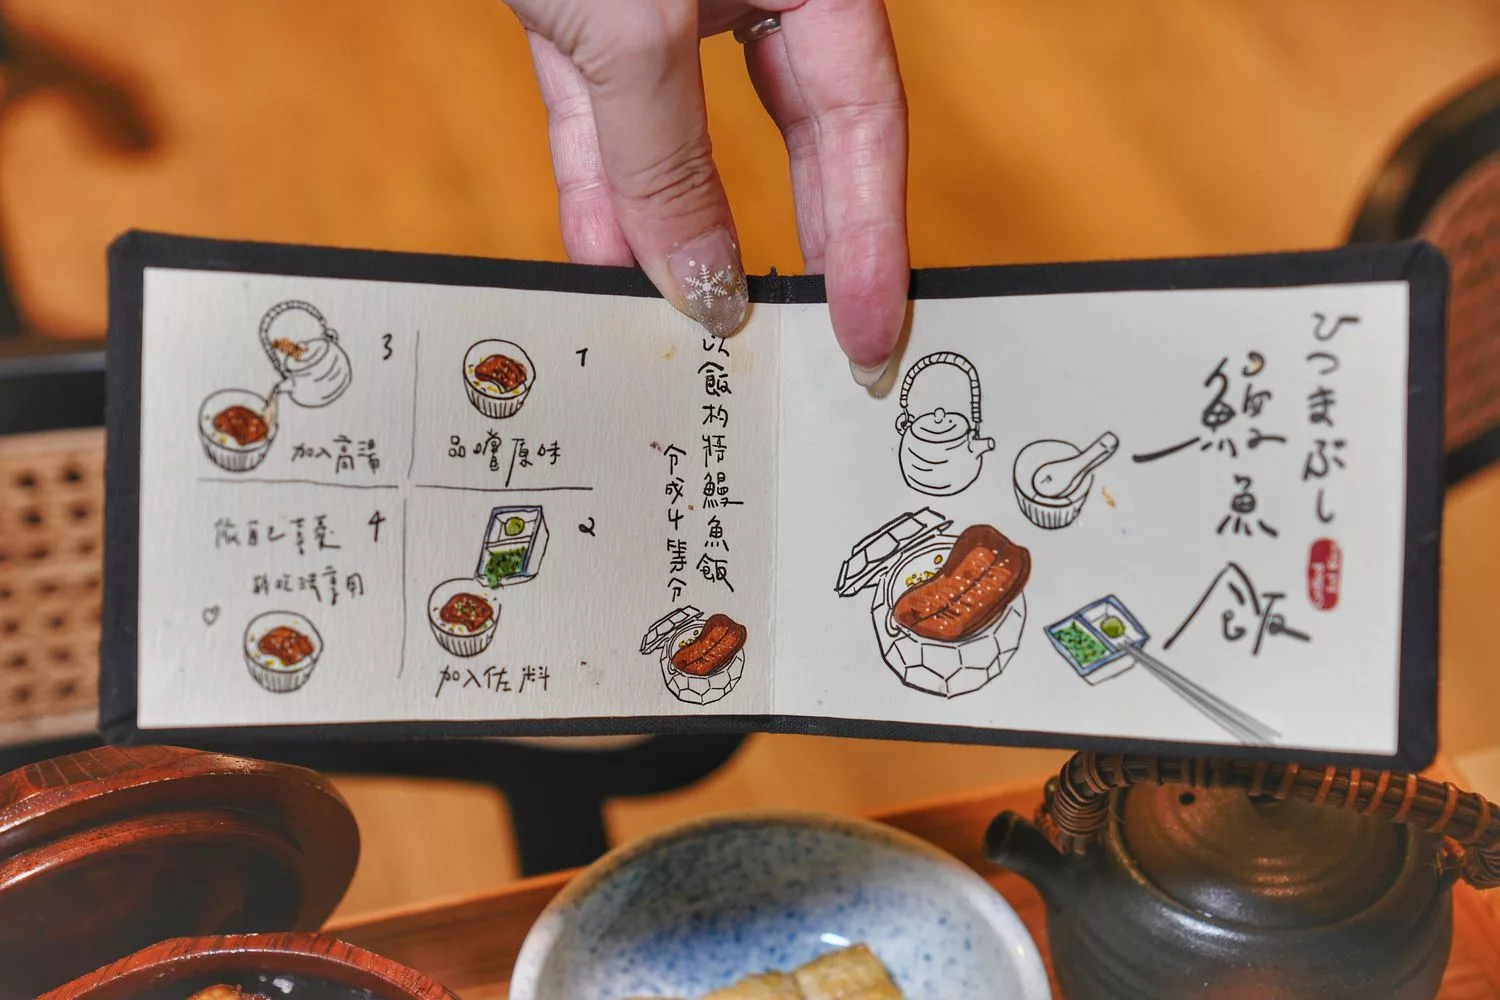 ひつまぶし
鰻魚飯
以飯杓將鰻魚飯
分成4等分
1
品嚐原味
2
加入佐料
3
加入高湯
4
依自己喜愛
的吃法享用